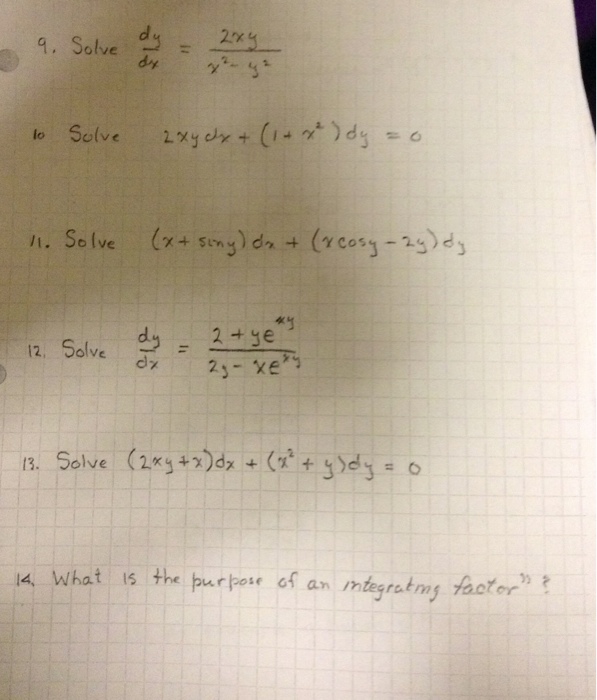 9. Solve dy/dx = 2xy/(x² - y²)
10 Solve 2xydx + (1 + x²)dy = 0
11. Solve (x + siny)dx + (xcosy - 2y)dy
12. Solve dy/dx = (2 + ye^xy)/(2y - xe^xy)
13. Solve (2xy + x)dx + (x² + y)dy = 0
14. What is the purpose of an integrating factor" ?